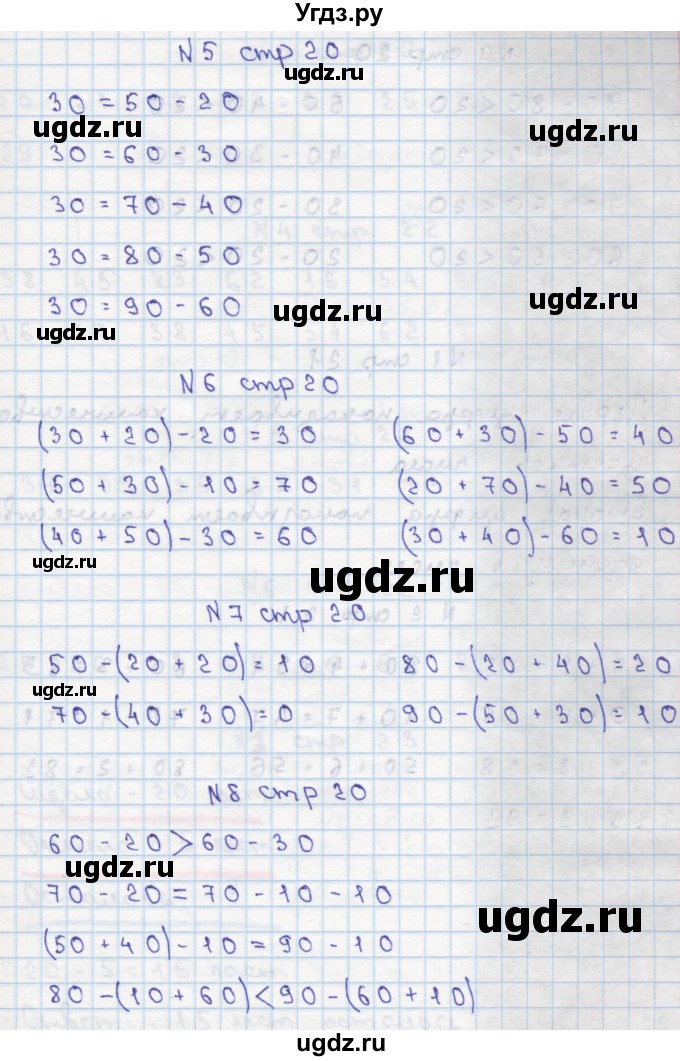 Угдз.ру
N 5 стр 20
ugdz.ru
30 = 50 - 20
ugdz.ru
ugdz.ru
30 = 60 - 30
30 = 70 - 40
30 = 80 - 50
30 = 90 - 60
ugdz.ru
ugdz.ru
ugdz.ru
N 6 стр 20
(30 + 20) - 20 = 30 (60 + 30) - 50 = 40
(50 + 30) - 10 = 70 (20 + 70) - 40 = 50
(40 + 50) - 30 = 60 (30 + 40) - 60 = 10
ugdz.ru
ugdz.ru
N 7 стр 20
50 - (20 + 20) = 10 80 - (20 + 40) = 20
ugdz.ru
70 - (40 + 30) = 0 90 - (50 + 30) = 10
N 8 стр 20
60 - 20 > 60 - 30
ugdz.ru
70 - 20 = 70 - 10 - 10
ugdz.ru
(50 + 40) - 10 = 90 - 10
80 - (10 + 60) < 90 - (60 + 10)
ugdz.ru